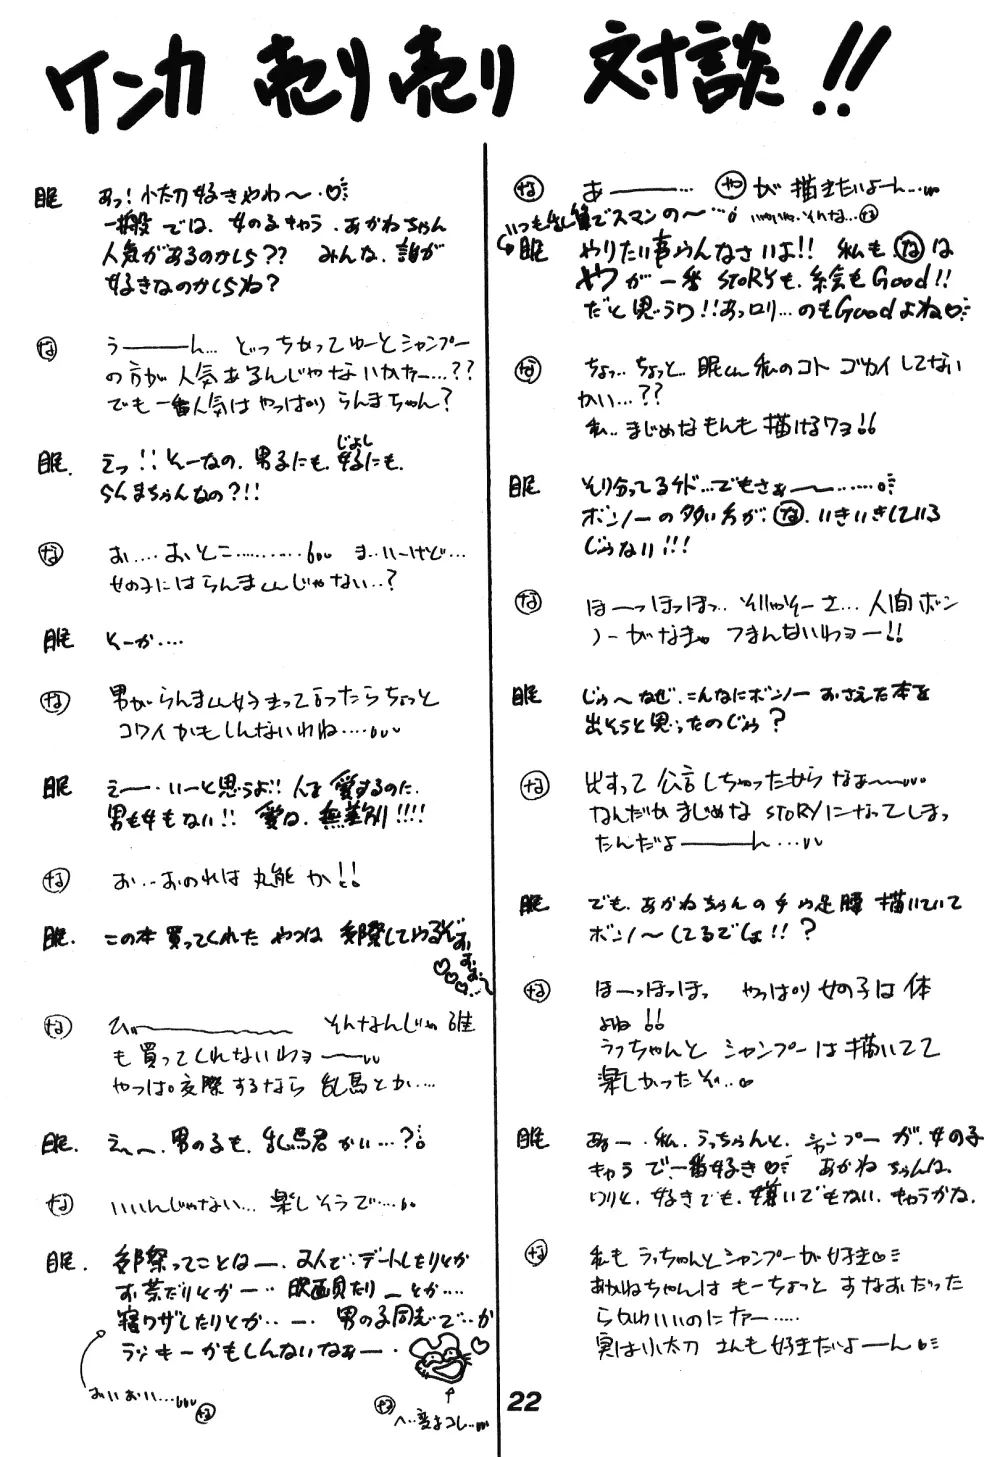 ケンカ 売り売り 対談!!
眠 あっ!小太刀好きやわ〜・♡
一般では、女の子キャラ、あかねちゃん
人気があるのかしら?? みんな、誰が
好きなのかしらね?
な うーーーん… どっちかってゆーとシャンプー
の方が人気あるんじゃないかなー…??
でも一番人気はやっぱりらんまちゃん?
眠. えっ!!そーなの、男子にも、女子にも、
じょし
らんまちゃんなの?!!
な お‥‥おとこ…………
ま‥いーけど…
女の子にはらんまくんじゃない‥?
眠 そーか‥‥
な 男がらんまくん好きって言ったらちょっと
コワイかもしんないわね‥‥
眠 えー‥いーと思うよ!!人を愛するのに、
男も女もない!! 愛は、無差別!!!!
な お‥‥おのれは丸能か!!
眠. この本買ってくれたやつは 交際してやるぞぉ
な ひぃ〜〜〜 そんなんじゃ誰
も買ってくれないわョーー
やっぱ。交際するなら 乱馬とか‥‥
眠. え〜〜、男の子も、乱馬君かい…?
な いいんじゃない… 楽しそうで…
眠. 交際ってことはー、2人で‥デートしたりとか
お茶だりとかー‥ 映画見たり_とか‥‥
寝ワザしたりとか‥ー、 男の子同志で‥か
ラッキーかもしんないなぁー‥
おいおい… な
な へ‥変なコレ‥
な あーーー… やが描きたいよーん…
いつも乱筆でスマンの〜…
いやいや、そんな… な
眠 やりたい事やんなさいよ!! 私も なは
やが一番 STORYも、絵もGood!!
だと思うワ!!あっロリ…のもGoodよね♡
な ちょっ‥ちょっと‥眠くん私のコト ゴカイしてない
かい…??
私‥まじめなもんも描けるワョ!!
眠 そり分ってるケド…でもさぁー〜……
ボンノーの多い方が、な、いきいきしている
じゃない!!!
な ほーっほっほっ‥ そりゃそーさ… 人間ボン
ノーがなきゃ。つまんないわョー!!
眠 じゃ〜なぜ、こんなにボンノーおさえた本を
出そうと思ったのじゃ?
な 出すって公言しちゃったから なぁ〜〜
なんだかまじめなSTORYになってしまっ
たんだよーーーん…
眠 でも、あかねちゃんの手や足腰描いていて
ボンノ〜してるでしょ!!?
な ほーっほっほっ やっぱり女の子は体
よね!!
うっちゃんとシャンプーは描いてて
楽しかったぞ‥
眠 あぁー、私、うっちゃんと、シャンプーが、女の子
キャラで一番好き♡ あかねちゃんは、
わりと、好きでも、嫌いでもない、キャラかな、
な 私もうっちゃんとシャンプーが好き♡
あかねちゃんはもーちょっとすなおだった
らかわいいのにナァー‥‥
実は小太刀さんも好きだよーん♡
22